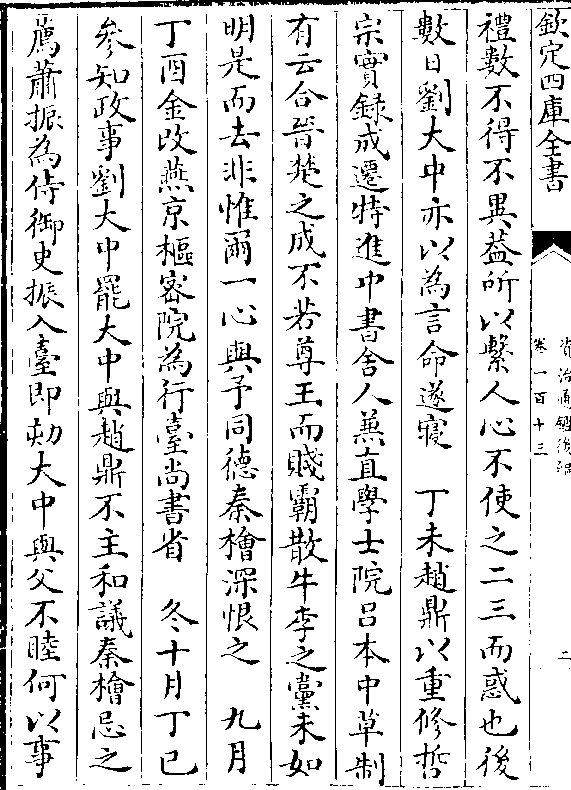 欽定四庫全書
資治通鑑後編
卷一百十三
二
禮數不得不異葢所以繫人心不使之二三而惑也後
數日劉大中亦以為言命遂寢　丁未趙鼎以重修哲
宗實錄成遷特進中書舍人兼直學士院吕本中草制
有云合晉楚之成不若尊王而賤霸散牛李之黨未如
明是而去非惟爾一心與予同德秦檜深恨之　九月
丁酉金改燕京樞密院為行臺尚書省　冬十月丁巳
參知政事劉大中罷大中與趙鼎不主和議秦檜忌之
薦蕭振為侍御史振入臺即劾大中與父不睦何以事